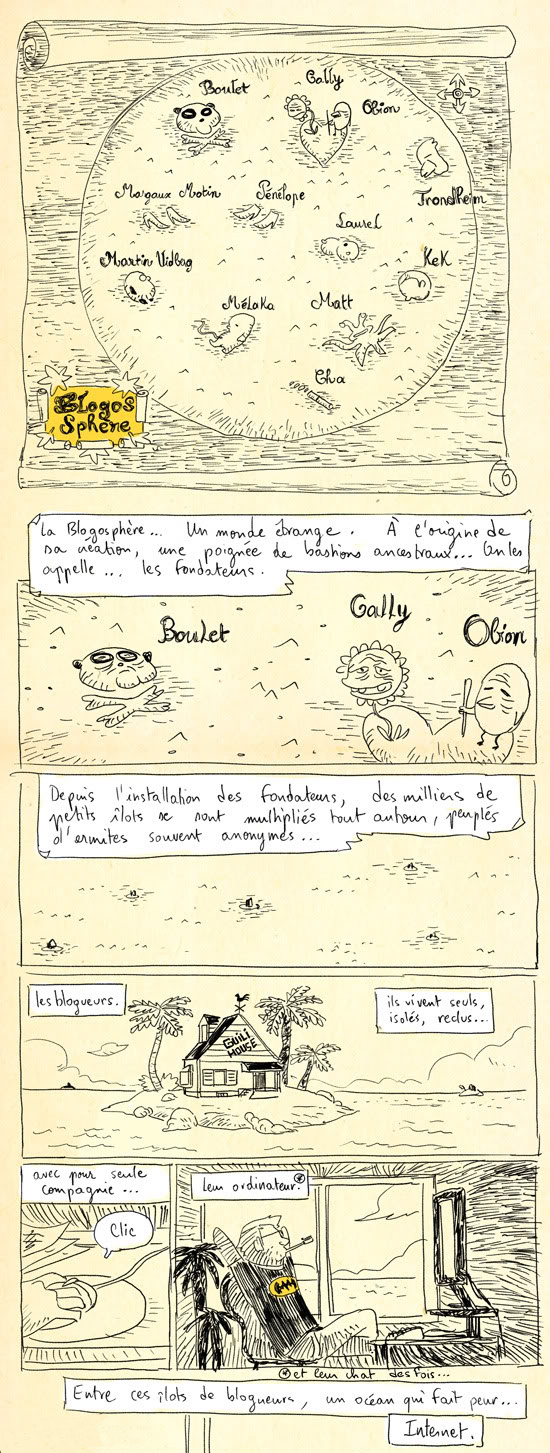 Boulet
Gally
Obion
Trondheim
Margaux Motin
Pénélope
Laurel
Martin Vidbag
Kek
Mélaka
Matt
Cha
Blogo
Sphère
La Blogosphère... Un monde étrange. À l'origine de
sa création, une poignée de bastions ancestraux... On les
appelle... les fondateurs.
Boulet
Gally
Obion
Depuis l'installation des fondateurs, des milliers de
petits îlots se sont multipliés tout autour, peuplés
d'ermites souvent anonymes...
les blogueurs.
ils vivent seuls,
isolés, reclus...
GUILI
HOUSE
avec pour seule
compagnie...
Clic
leur ordinateur.*
*et leur chat des fois...
Entre ces îlots de blogueurs, un océan qui fait peur...
Internet.